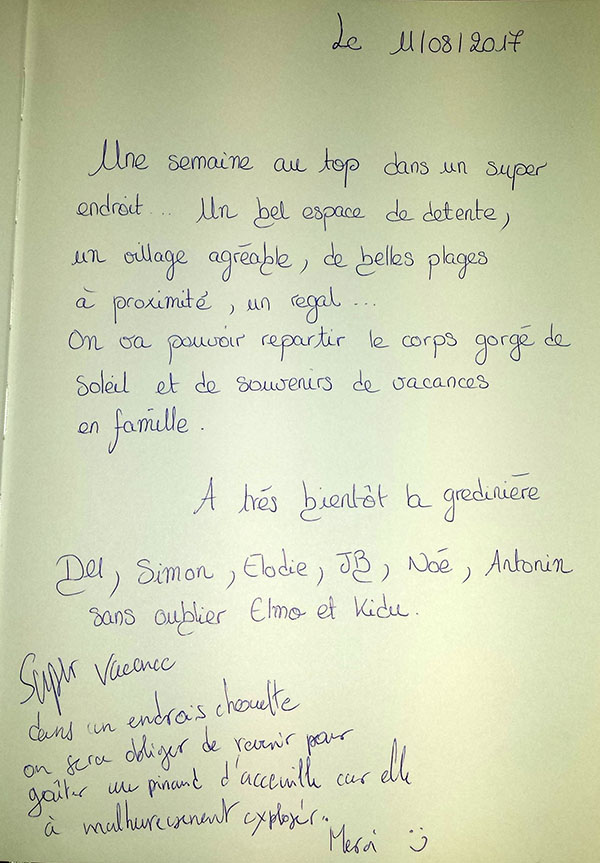 Le 11/08/2017
Une semaine au top dans un super
endroit... Un bel espace de detente,
un village agréable, de belles plages
à proximité, un regal...
On va pouvoir repartir le corps gorgé de
soleil et de souvenirs de vacances
en famille.
A trés bientôt la gredinière
Del, Simon, Elodie, JB, Noé, Antonin
sans oublier Elmo et Kidu.
Super vacance
dans un endrois chouette
on sera obliger de revenir pour
goûter une pinard d'acceuille car elle
à malhureusement explosér.
Merci :)